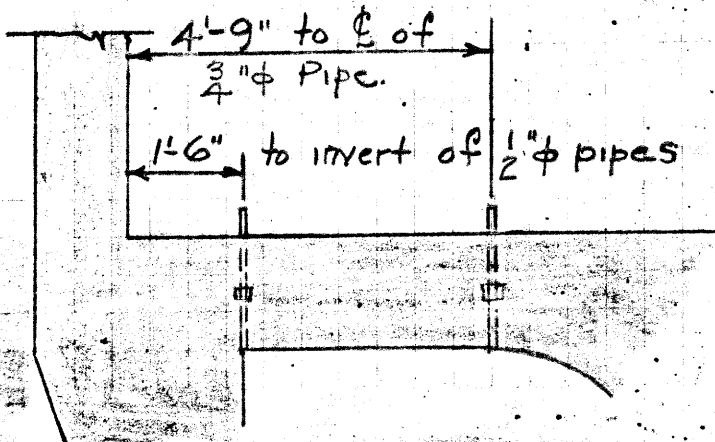 4'-9" to ℄ of
3/4"ϕ Pipe.
1'-6" to invert of 1/2"ϕ pipes